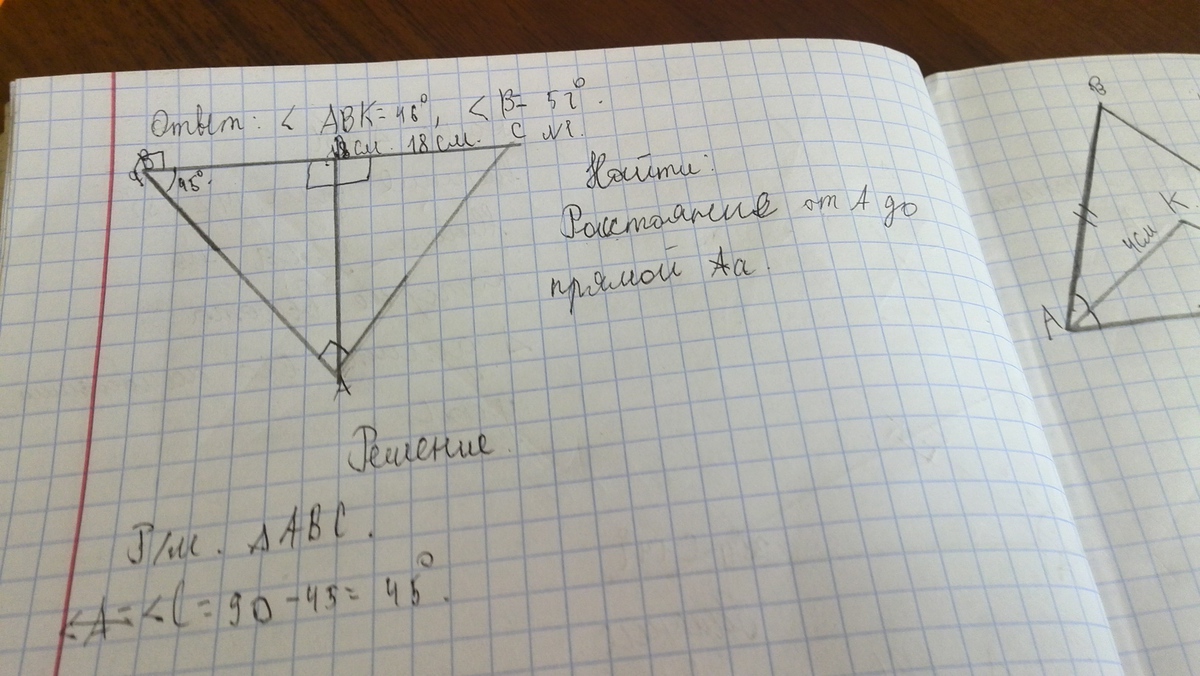 Ответ: < ABK=46°, < B= 52°.
18см. 18см. C №2.
45°.
A
Найти:
Расстояние от A до
прямой Aa.
Решение
Р/м. ΔABC.
<A=<C=90-45=45°.
B
K
4см
A